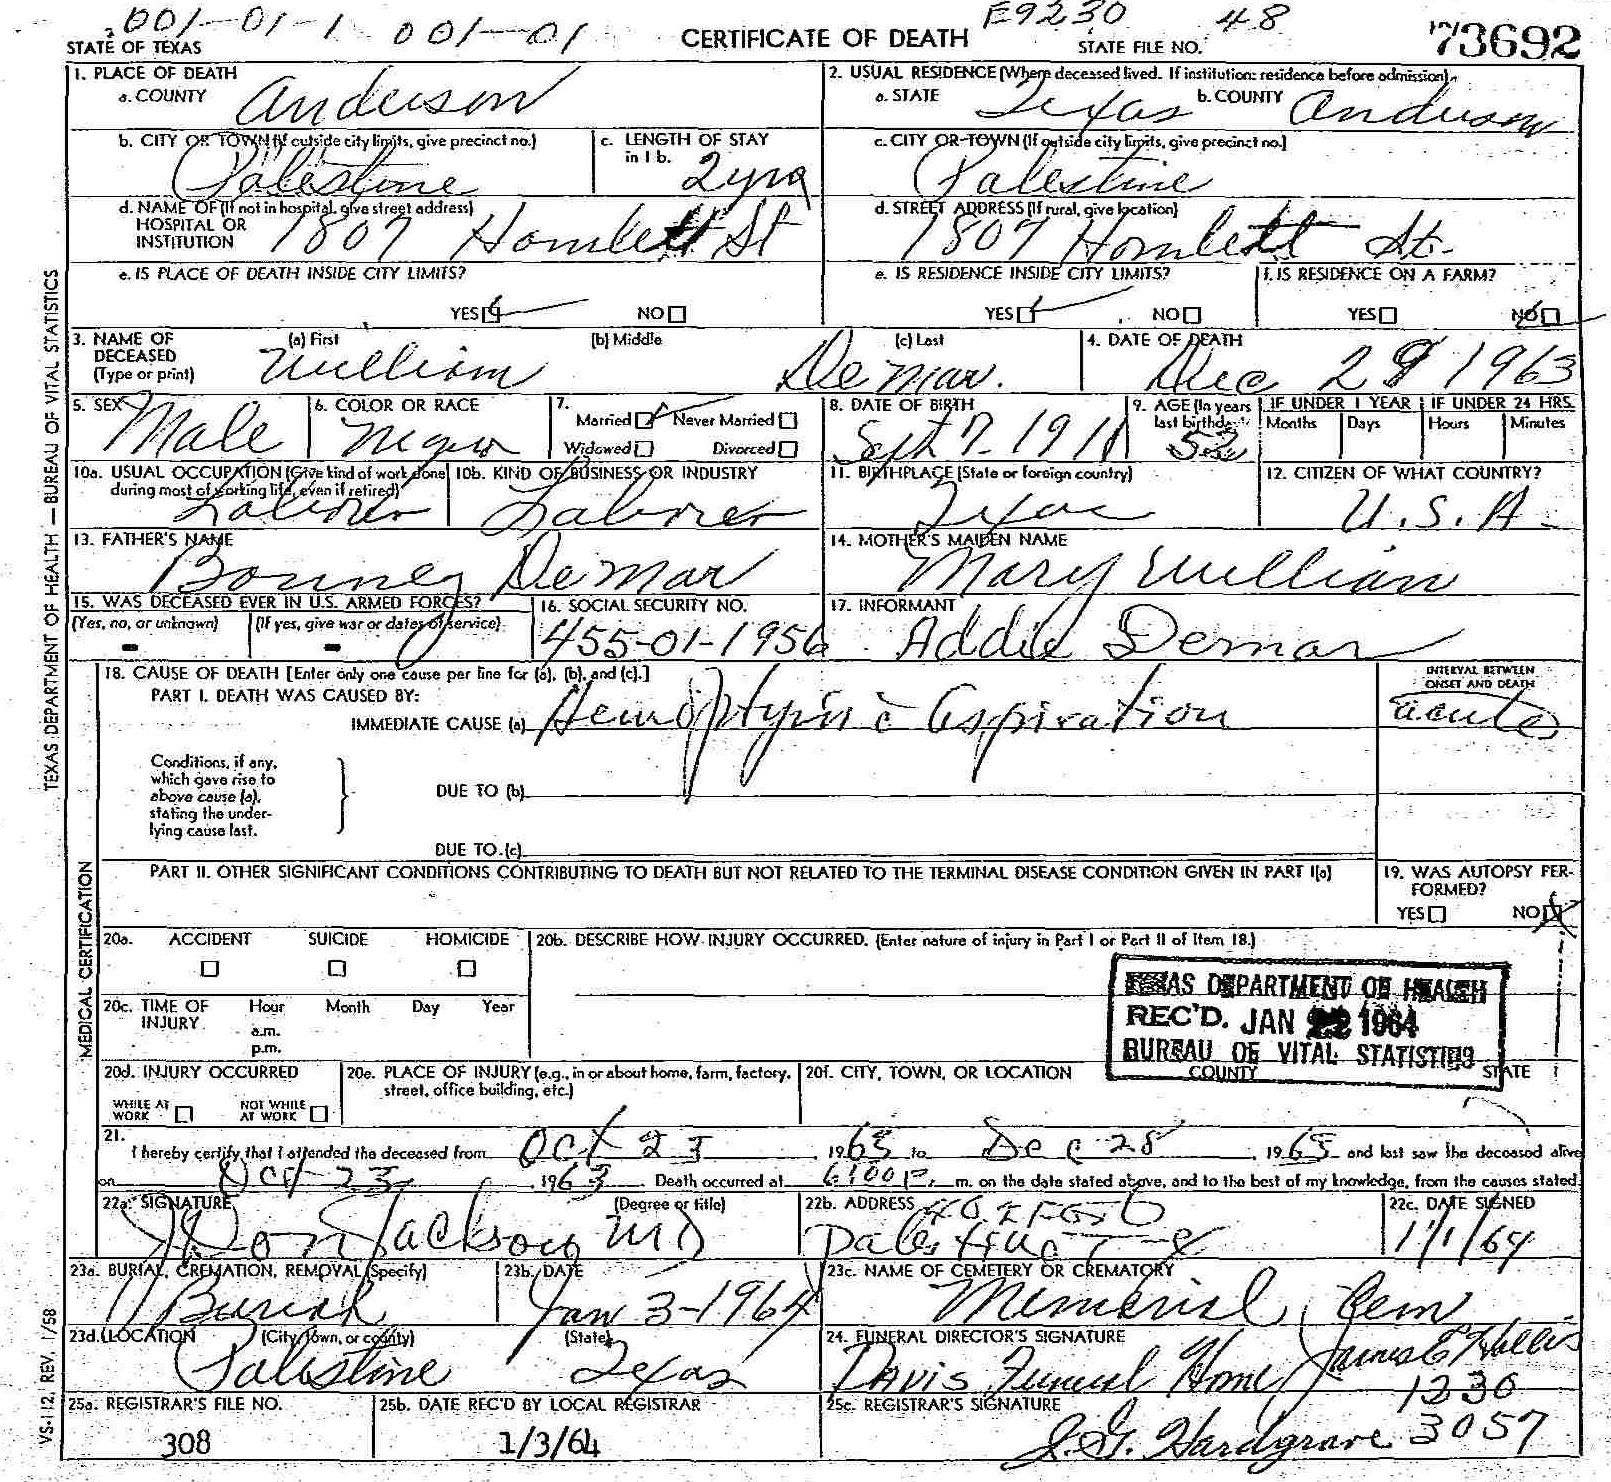 001-01-1 001-01 E9230 48
STATE OF TEXAS CERTIFICATE OF DEATH STATE FILE NO. 73692
1. PLACE OF DEATH
a. COUNTY Anderson
2. USUAL RESIDENCE (Where deceased lived. If institution: residence before admission)
a. STATE Texas b. COUNTY Anderson
b. CITY OR TOWN (If outside city limits, give precinct no.) Palestine
c. LENGTH OF STAY in 1 b. 2 yrs
c. CITY OR TOWN (If outside city limits, give precinct no.) Palestine
d. NAME OF (If not in hospital, give street address) HOSPITAL OR INSTITUTION 1807 Hamlett St
d. STREET ADDRESS (If rural, give location) 1807 Hamlett St.
e. IS PLACE OF DEATH INSIDE CITY LIMITS?
YES NO
e. IS RESIDENCE INSIDE CITY LIMITS?
YES NO
f. IS RESIDENCE ON A FARM?
YES NO
3. NAME OF DECEASED (Type or print)
(a) First (b) Middle (c) Last
William DeMar.
4. DATE OF DEATH
Dec 29 1963
5. SEX Male
6. COLOR OR RACE Negro
7. Married Never Married
Widowed Divorced
8. DATE OF BIRTH Sept 7. 1911
9. AGE (In years last birthday) 52
IF UNDER 1 YEAR IF UNDER 24 HRS.
Months Days Hours Minutes
10a. USUAL OCCUPATION (Give kind of work done during most of working life, even if retired) Laborer
10b. KIND OF BUSINESS OR INDUSTRY Laborer
11. BIRTHPLACE (State or foreign country) Texas
12. CITIZEN OF WHAT COUNTRY? U.S.A.
13. FATHER'S NAME Bonney DeMar
14. MOTHER'S MAIDEN NAME Mary William
15. WAS DECEASED EVER IN U.S. ARMED FORCES?
(Yes, no, or unknown) (If yes, give war or dates of service)
- -
16. SOCIAL SECURITY NO. 455-01-1956
17. INFORMANT Addie Demar
18. CAUSE OF DEATH [Enter only one cause per line for (a), (b), and (c).]
PART I. DEATH WAS CAUSED BY:
IMMEDIATE CAUSE (a) Hemoptysis c aspiration
INTERVAL BETWEEN ONSET AND DEATH
acute
Conditions, if any, which gave rise to above cause (a), stating the underlying cause last.
DUE TO (b)
DUE TO (c)
PART II. OTHER SIGNIFICANT CONDITIONS CONTRIBUTING TO DEATH BUT NOT RELATED TO THE TERMINAL DISEASE CONDITION GIVEN IN PART I(a)
19. WAS AUTOPSY PERFORMED?
YES NO
20a. ACCIDENT SUICIDE HOMICIDE
20b. DESCRIBE HOW INJURY OCCURRED. (Enter nature of injury in Part I or Part II of Item 18.)
20c. TIME OF INJURY Hour Month Day Year
a.m.
p.m.
TEXAS DEPARTMENT OF HEALTH
REC'D. JAN 22 1964
BUREAU OF VITAL STATISTICS
20d. INJURY OCCURRED
WHILE AT WORK NOT WHILE AT WORK
20e. PLACE OF INJURY (e.g., in or about home, farm, factory, street, office building, etc.)
20f. CITY, TOWN, OR LOCATION COUNTY STATE
21. I hereby certify that I attended the deceased from Oct 23 1963 to Dec 28, 1963 and last saw the deceased alive
on Oct 23, 1963 Death occurred at 6:00 P. m. on the date stated above, and to the best of my knowledge, from the causes stated.
22a. SIGNATURE (Degree or title)
Don Jackson MD
22b. ADDRESS
Palestine Tex
22c. DATE SIGNED
1/1/64
23a. BURIAL, CREMATION, REMOVAL (Specify) Burial
23b. DATE Jan 3-1964
23c. NAME OF CEMETERY OR CREMATORY Memorial Cem
23d. LOCATION (City, town, or county) (State)
Palestine Texas
24. FUNERAL DIRECTOR'S SIGNATURE
Davis Funeral Home James E Hollis
1230
25a. REGISTRAR'S FILE NO. 308
25b. DATE REC'D BY LOCAL REGISTRAR 1/3/64
25c. REGISTRAR'S SIGNATURE J.G. Hardgrave 3057
TEXAS DEPARTMENT OF HEALTH — BUREAU OF VITAL STATISTICS
MEDICAL CERTIFICATION
VS-112 REV. 1/58